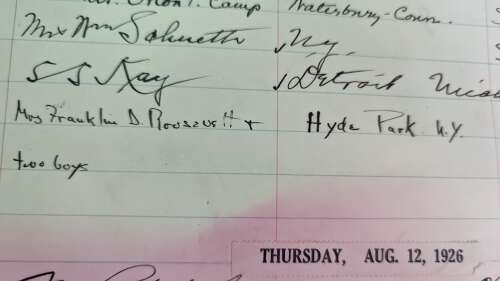 Camp Waterbury - Conn.
Mr & Mrs N.Y.
S S Kay Detroit Mich
Mrs Franklin D. Roosevelt + Hyde Park N.Y.
two boys
THURSDAY, AUG. 12, 1926